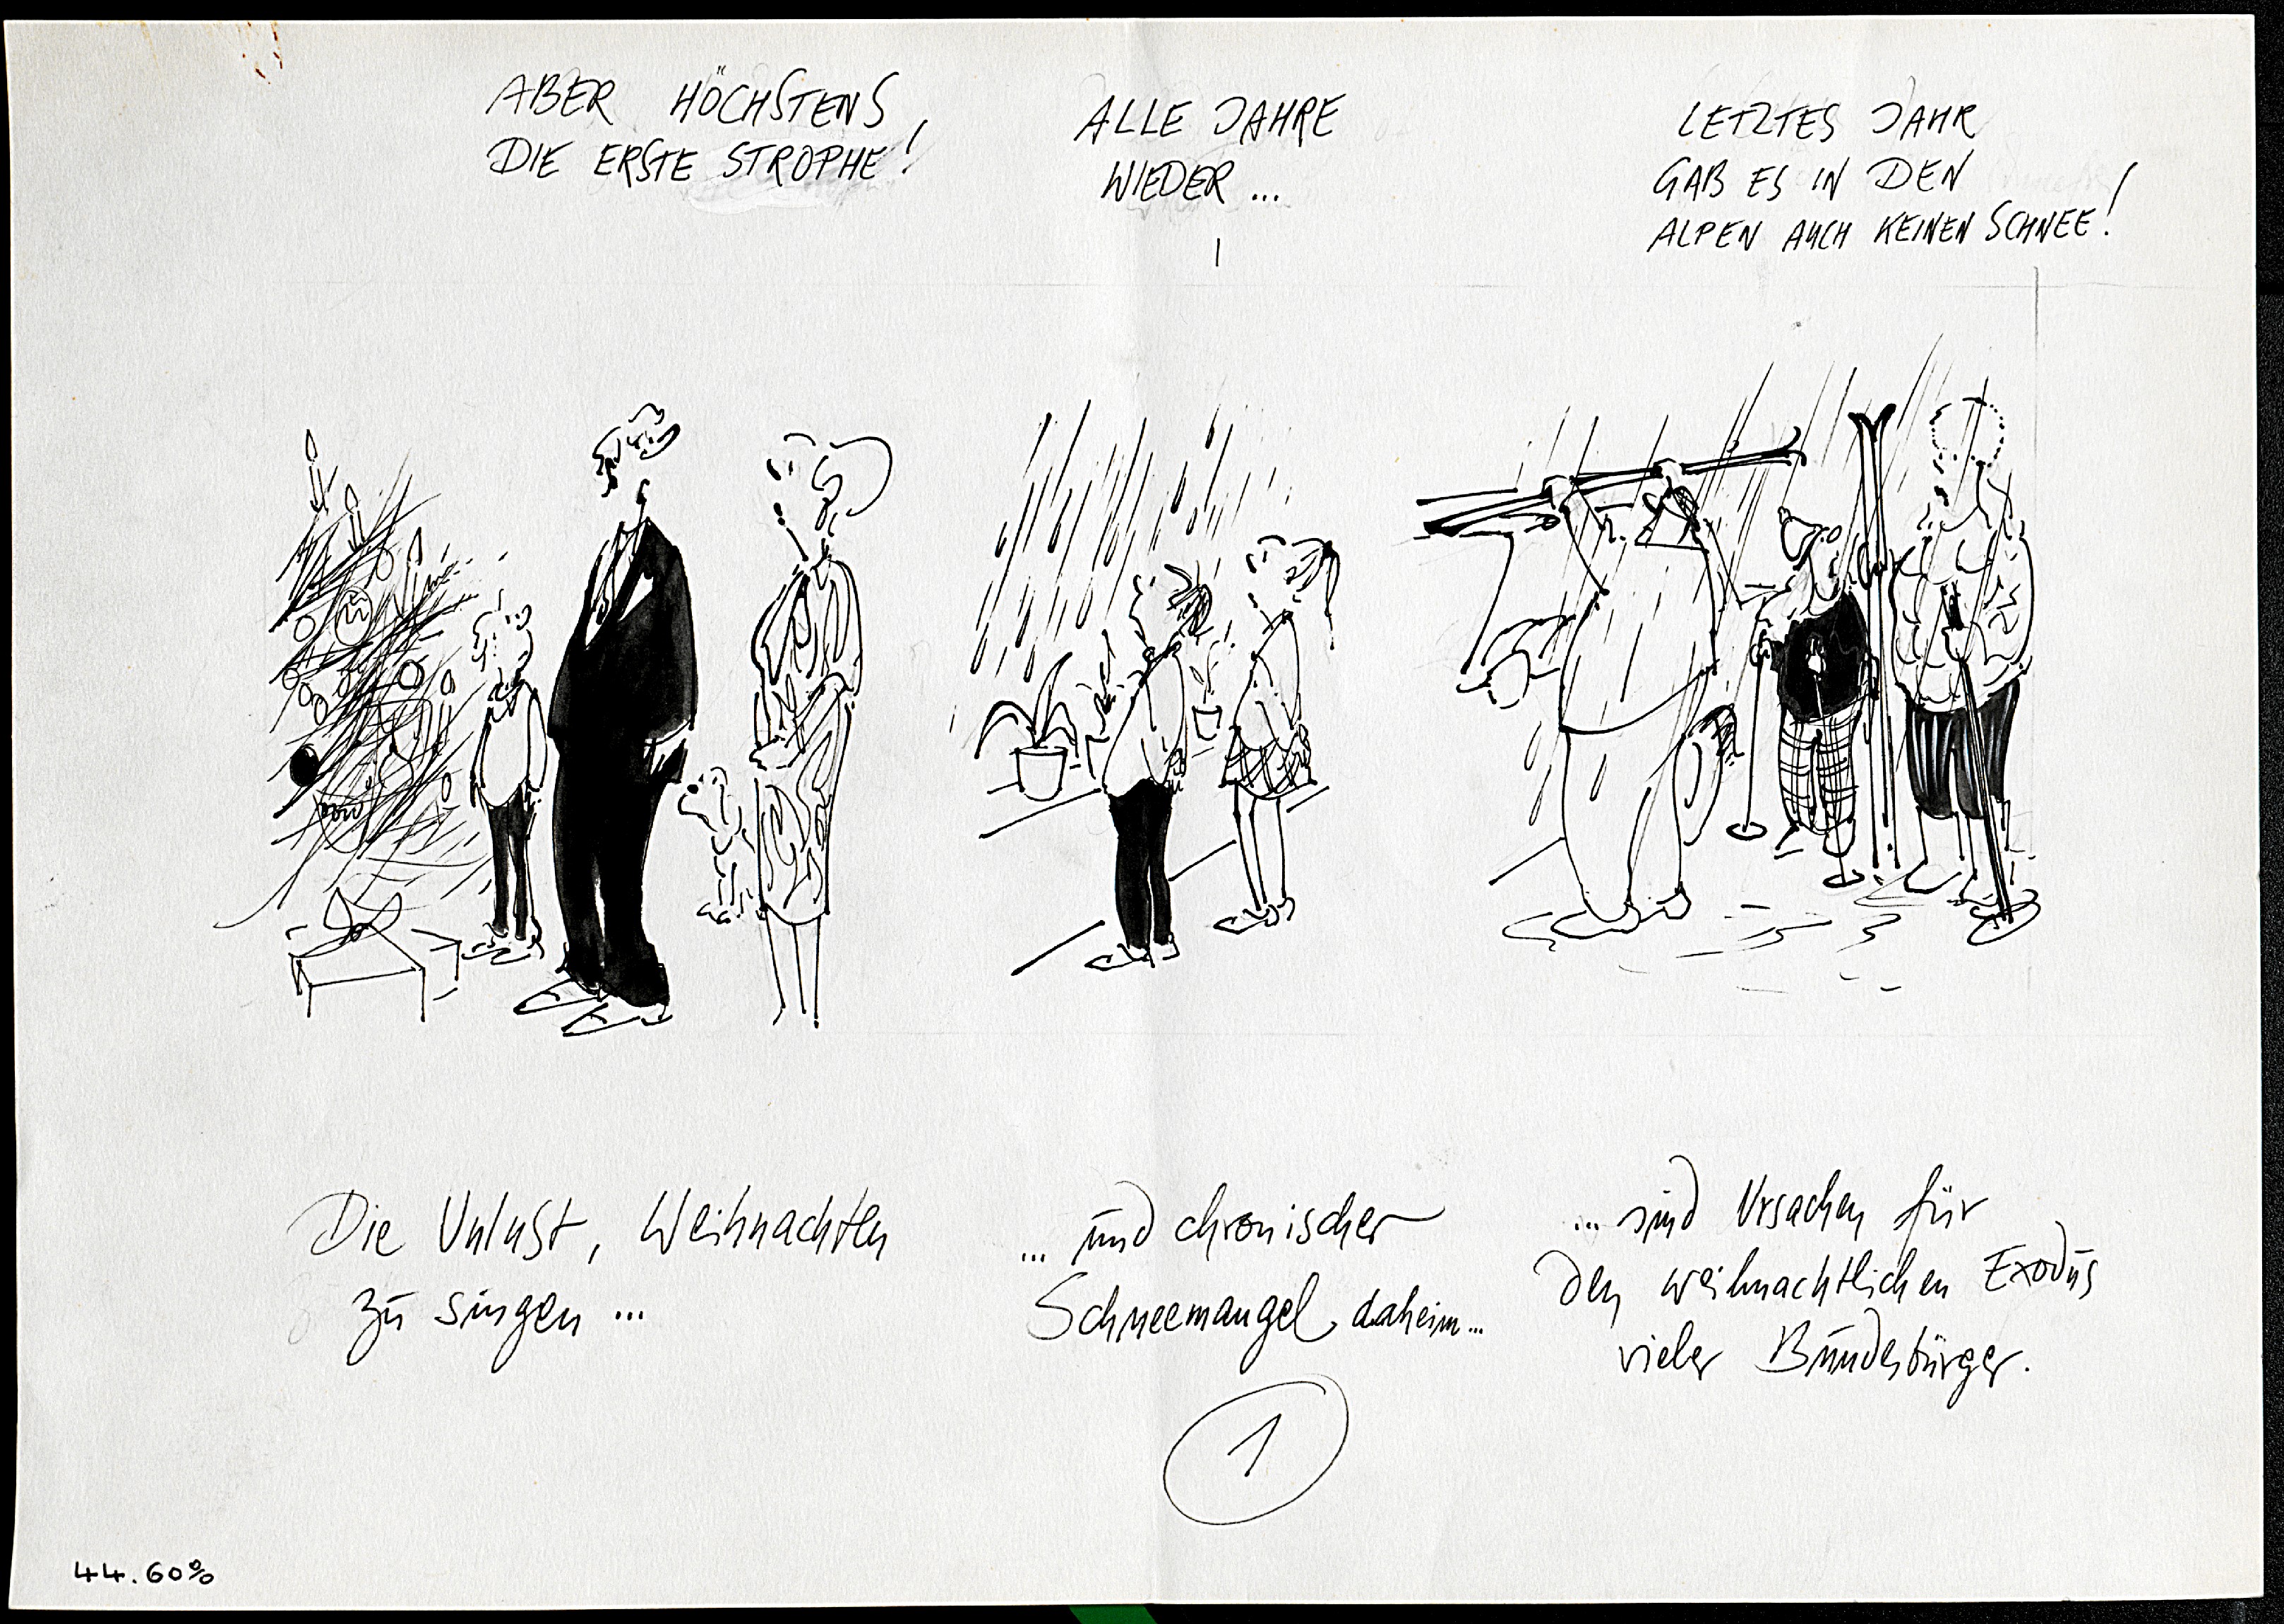 ABER HÖCHSTENS
DIE ERSTE STROPHE!
ALLE JAHRE
WIEDER ...
LETZTES JAHR
GAB ES IN DEN
ALPEN AUCH KEINEN SCHNEE!
Die Unlust, Weihnachten
zu singen ...
... und chronischer
Schneemangel daheim ...
... sind Ursachen für
den weihnachtlichen Exodus
vieler Bundesbürger.
1
44.60%